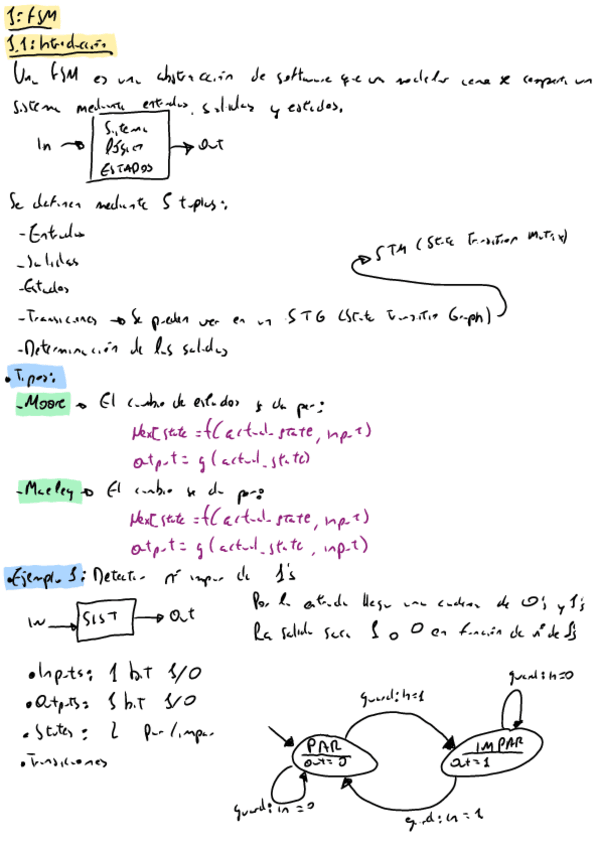 1: FSM
1.1: Introducción
Una FSM es una abstracción de software que modelar como se comporta un
sistema mediante entradas, salidas y estados.
In
Sistema
lógico
ESTADOS
Out
Se definen mediante 5 tuplas:
- Entradas
- Salidas
- Estados
STM (State Transition Matrix)
- Transiciones → Se pueden ver en un STG (State Transition Graph)
- Determinación de las salidas
• Tipos:
- Moore → El cambio de estados se da por:
Next state = f(actual_state, input)
output = g(actual_state)
- Maeley → El cambio se da por:
Next state = f(actual_state, input)
output = g(actual_state, input)
• Ejemplo 1: Detectar nº impar de 1's
IN
SIST
Out
Por la entrada llega una cadena de 0's y 1's
La salida sera 1 o 0 en función de nº de 1's
• Inputs: 1 bit 1/0
• Outputs: 1 bit 1/0
• States: 2 Par/impar
• Transiciones
guard: in=0
guard: in=1
PAR
out=0
IMPAR
out=1
guard: in=0
guard: in=1